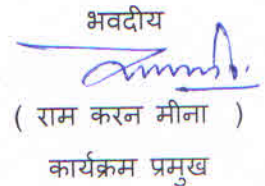 भवदीय
( राम करन मीना )
कार्यक्रम प्रमुख